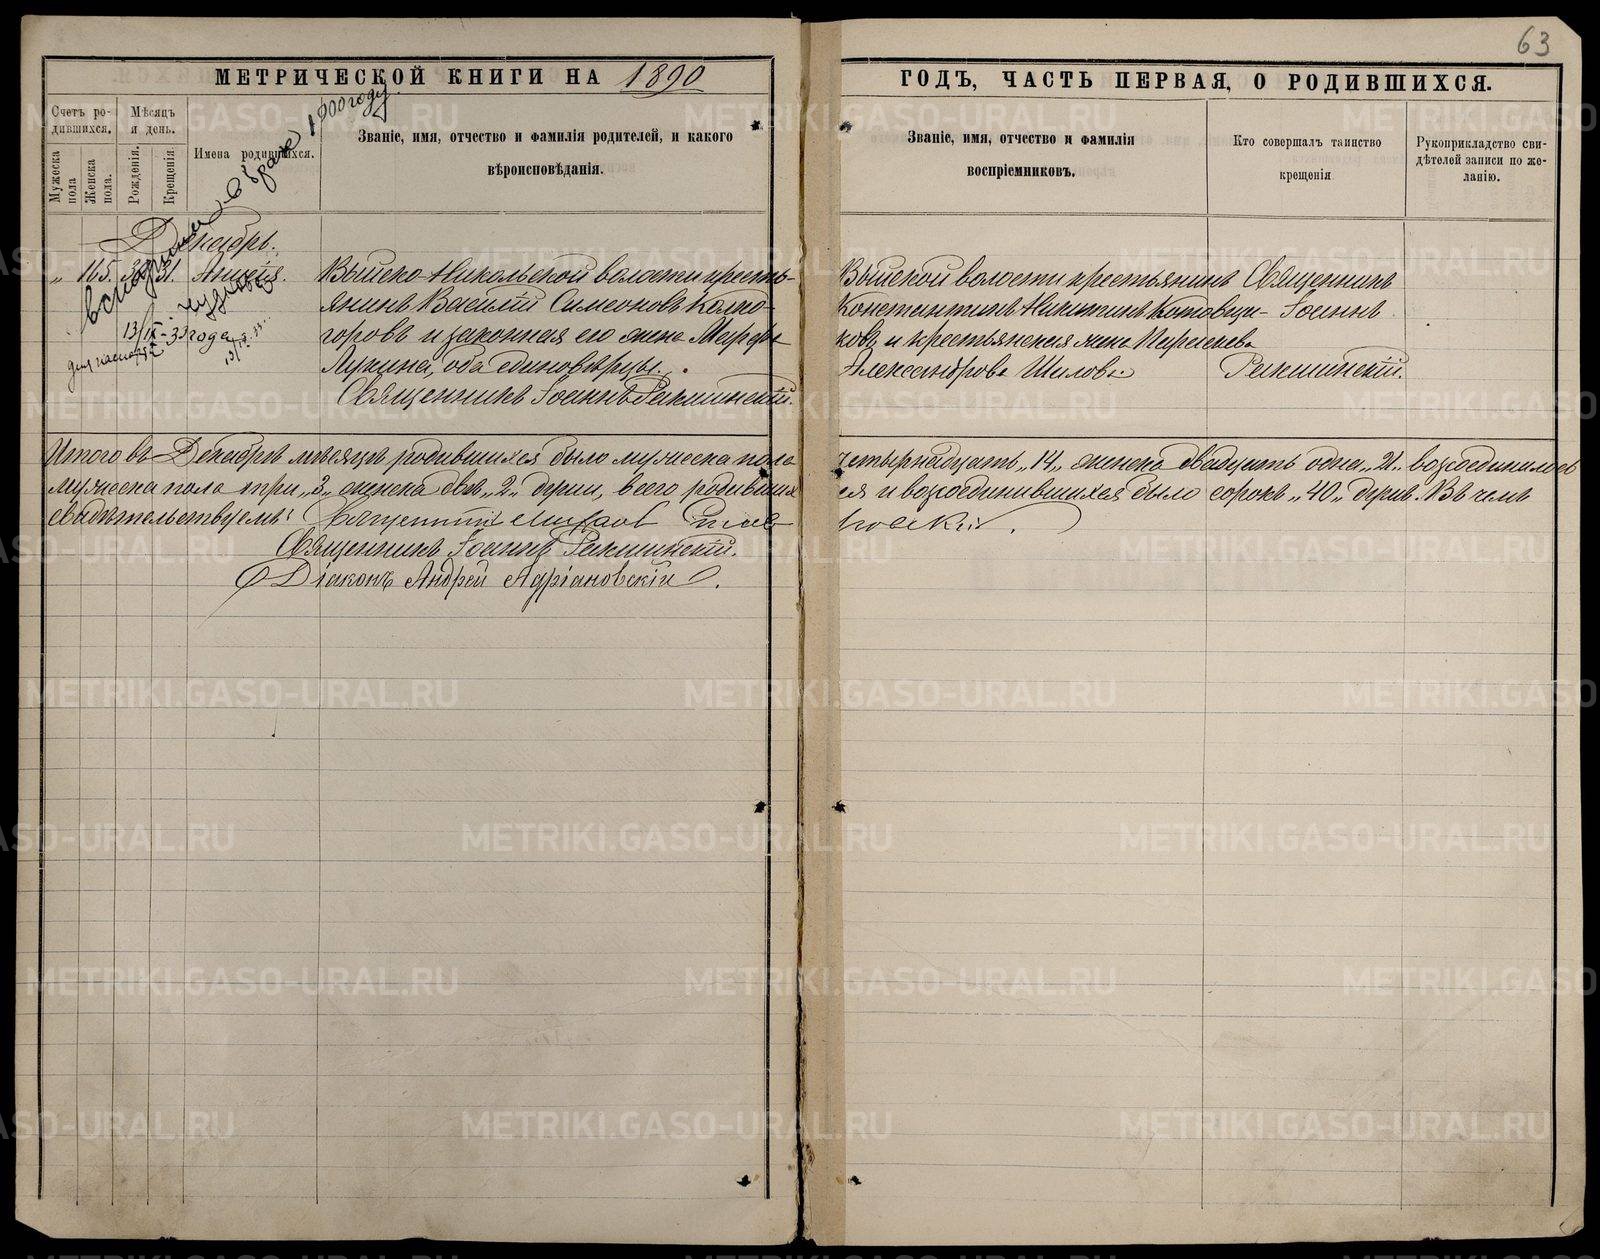 63
МЕТРИЧЕСКОЙ КНИГИ НА 1890
ГОДЪ, ЧАСТЬ ПЕРВАЯ, О РОДИВШИХСЯ.
Счетъ ро-
дившихся.
Мужеска пола
Женска пола.
Мѣсяцъ
и день.
Рожденія.
Крещенія.
Имена родившихся.
Званіе, имя, отчество и фамилія родителей, и какого
вѣроисповѣданія.
Званіе, имя, отчество и фамилія
воспріемниковъ.
Кто совершалъ таинство
крещенія
Рукоприкладство сви-
дѣтелей записи по же-
ланію.
1900 году
Декабрь.
" 165. 31.
Выйско-Никольской волости кресть-
янинъ Василій Симеоновъ Колмо-
горовъ и законная его жена Марфа
Лукина, оба единовѣрцы.
Священникъ Іоаннъ
13/IX-33 года
Выйской волости крестьянинъ
Константинъ Никитинъ Котовщи-
ковъ и крестьянская жена
Александрова Шилова.
Священникъ
Іоаннъ
Итого въ Декабрѣ мѣсяцѣ родившихся было мужеска пола
четырнадцать "14" женска двадцать одна "21" возсоединилось
мужеска пола три "3" женска двѣ "2" души, всего родивших
ся и возсоединившихся было сорокъ "40" душъ. Въ чемъ
свидѣтельствуемъ:
Священникъ Іоаннъ
Діаконъ Андрей Адріановскій.
METRIKI.GASO-URAL.RU